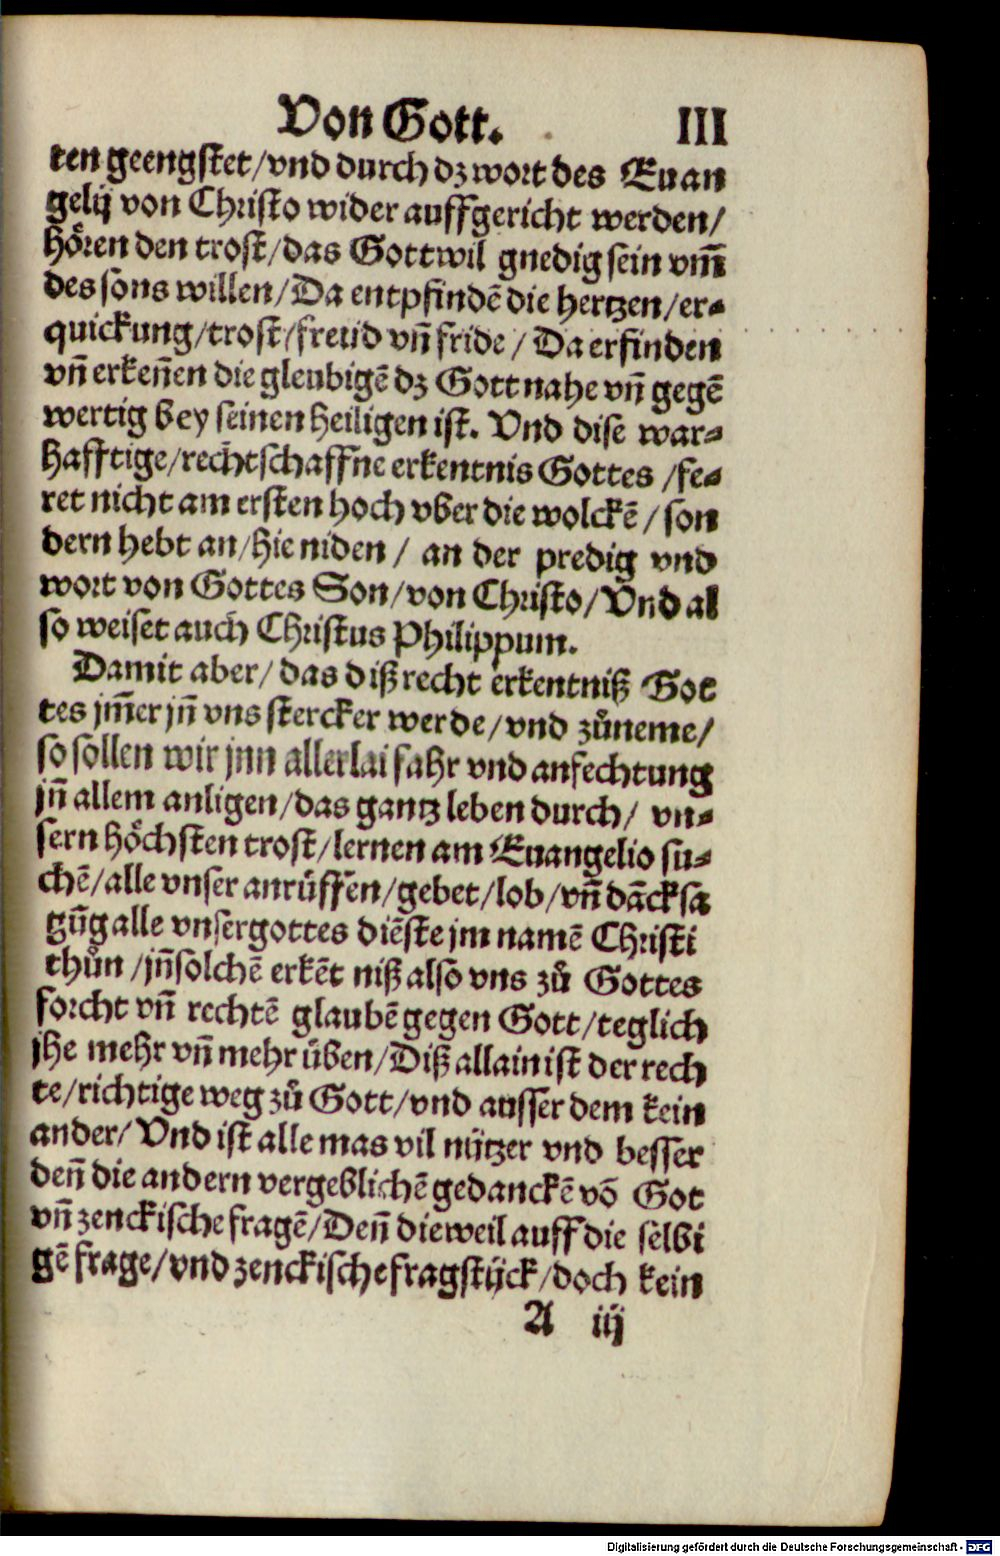 Von Gott. III
ten geengstet/vnd durch dz wort des Euan
gelij von Christo wider auffgericht werden/
hoͤren den trost/das Gott wil gnedig sein vm̃
des sons willen/Da entpfindē die hertzen/er⸗
quickung/trost/freud vñ fride/Da erfinden
vñ erkeñen die gleubigē dz Gott nahe vñ gegē
wertig bey seinen heiligen ist. Vnd dise war⸗
hafftige/rechtschaffne erkentnis Gottes/fe⸗
ret nicht am ersten hoch vber die wolckē/son
dern hebt an/hie niden/ an der predig vnd
wort von Gottes Son/von Christo/Vnd al
so weiset auch Christus Philippum.
Damit aber/das diß recht erkentniß Got
tes jm̃er jñ vns stercker werde/vnd zůneme/
so sollen wir jnn allerlai fahr vnd anfechtung
jñ allem anligen/das gantz leben durch/ vn⸗
sern hoͤchsten trost/lernen am Euangelio su⸗
chē/alle vnser anrüffen/gebet/lob/vñ dācksa
gūg alle vnsergottes diēste jm namē Christi
thůn/jñsolchē erkēt niß also vns zů Gottes
forcht vñ rechtē glaubē gegen Gott/teglich
jhe mehr vñ mehr üben/Diß allain ist der rech
te/richtige weg zů Gott/vnd ausser dem kein
ander/Vnd ist alle mas vil nützer vnd besser
deñ die andern vergeblichē gedanckē vō Got
vñ zenckische fragē/Deñ dieweil auff die selbi
gē frage/vnd zenckische fragstück/doch kein
A iij
Digitalisierung gefördert durch die Deutsche Forschungsgemeinschaft - DFG